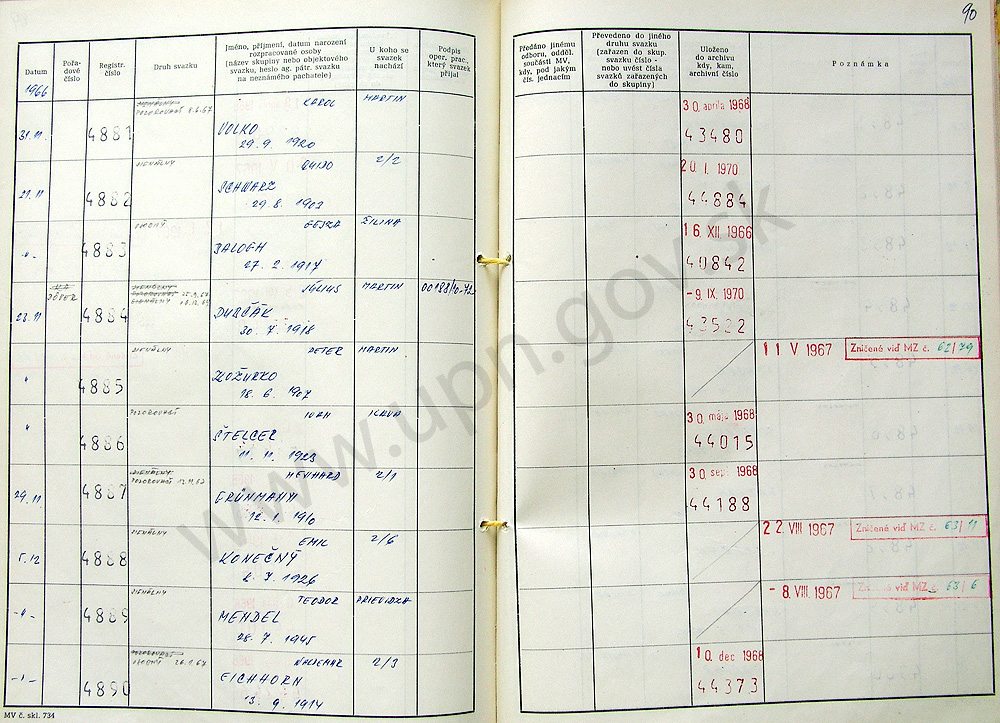 90
Datum
Pořa-
dové
číslo
Registr.
číslo
Druh svazku
Jméno, příjmení, datum narození
rozpracované osoby
(název skupiny nebo objektového
svazku, heslo ag. pátr. svazku
na neznámého pachatele)
U koho se
svazek
nachází
Podpis
oper. prac.,
který svazek
přijal
Předáno jinému
odboru, odděl.
součásti MV,
kdy, pod jakým
čís. jednacím
Převedeno do jiného
druhu svazku
(zařazen do skup.
svazku číslo -
nebo uvést čísla
svazků zařazených
do skupiny)
Uloženo
do archivu
kdy, kam,
archivní číslo
Poznámka
1966
KAROL MARTIN 30. apríla 1968
POZOROVACÍ 8.6.67
4881 VOLKO 43480
29. 9. 1920
2/2 20. I. 1970
21. 11 4882 SCHWARZ 44884
29. 8. 1902
GEJZA ŽILINA 16 XII. 1966
4883 BALOGH 40842
27. 2. 1917
JÚLIUS MARTIN 00188/10-72 -9. IX. 1970
23. 11 4884 DUBČÁK 43522
30. 7. 1918
PETER MARTIN 11 V 1967 Zničené viď MZ č. 62/79
4885
18. 6. 1907
IVAN ILAVA 30 mája 1968
4886 ŠTELCER 44015
11. 11. 1923
2/1 30 sep. 1968
POZOROVACÍ 12.11.67
24. 11 4887 44188
12. 1. 1910
EMIL 2/6 22. VIII 1967 Zničené viď MZ č. 63/11
5. 12 4888 KONEČNÝ
2. 7. 1926
TEODOR PRIEVIDZA -8. VIII. 1967 Zničené viď MZ č. 63/6
4889 MENDEL
28. 7. 1945
2/3 10. dec 1968
4890 EICHHORN 44373
13. 9. 1914
MV č. skl. 734
www.upn.gov.sk